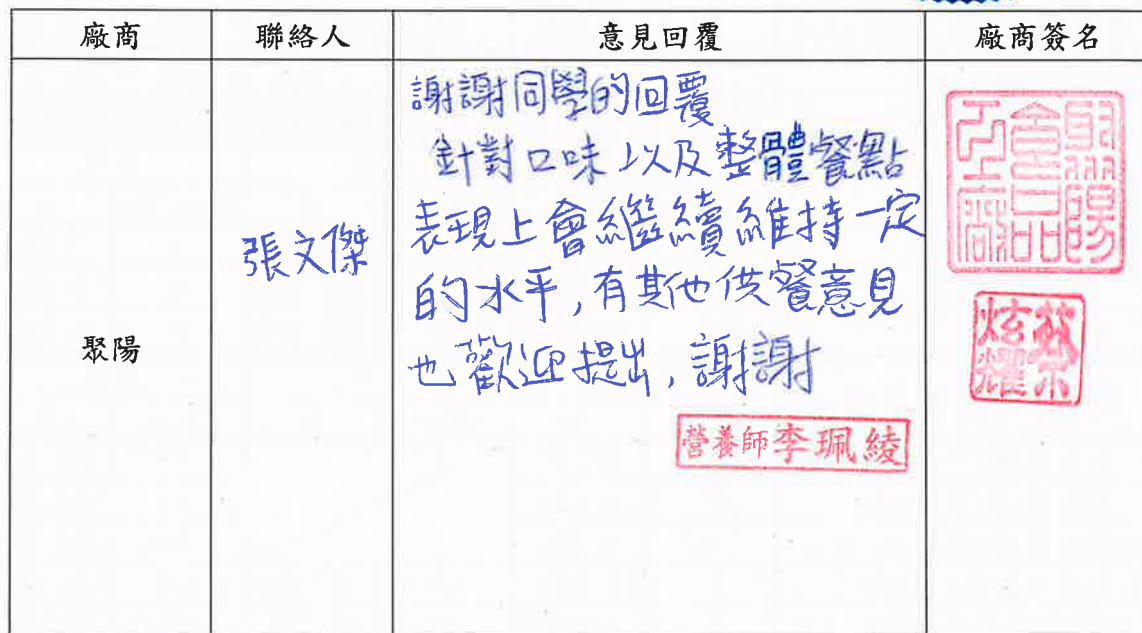 廠商 聯絡人 意見回覆 廠商簽名
謝謝同學的回覆
針對口味以及整體餐點
表現上會繼續維持一定
的水平,有其他供餐意見
也歡迎提出,謝謝
張文傑
聚陽
營養師李珮綾
聚陽
食品
工廠
炫耀